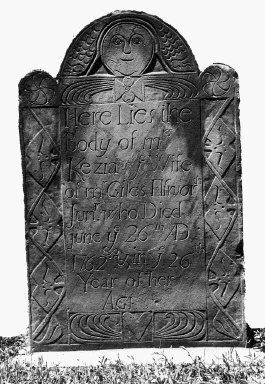 Here Lies the
Body of mrs
Kezia ye Wife
of mr Giles Elswort
Junr who Died
june ye 26th AD
1762 & in ye 26th
Year of her
Age